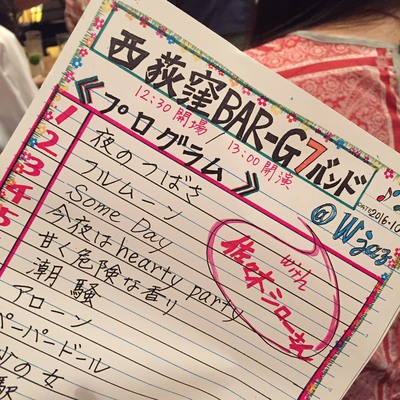 西荻窪BAR-G7バンド
12:30開場 13:00開演
@Wjaz
DATE 2016.10
《プログラム》
1 夜のつばさ
2 フルムーン
3 Some Day
4 今夜は hearty party
5 甘く危険な香り
潮騒
アローン
ペーパードール
の女
駅
佐々木シローさん